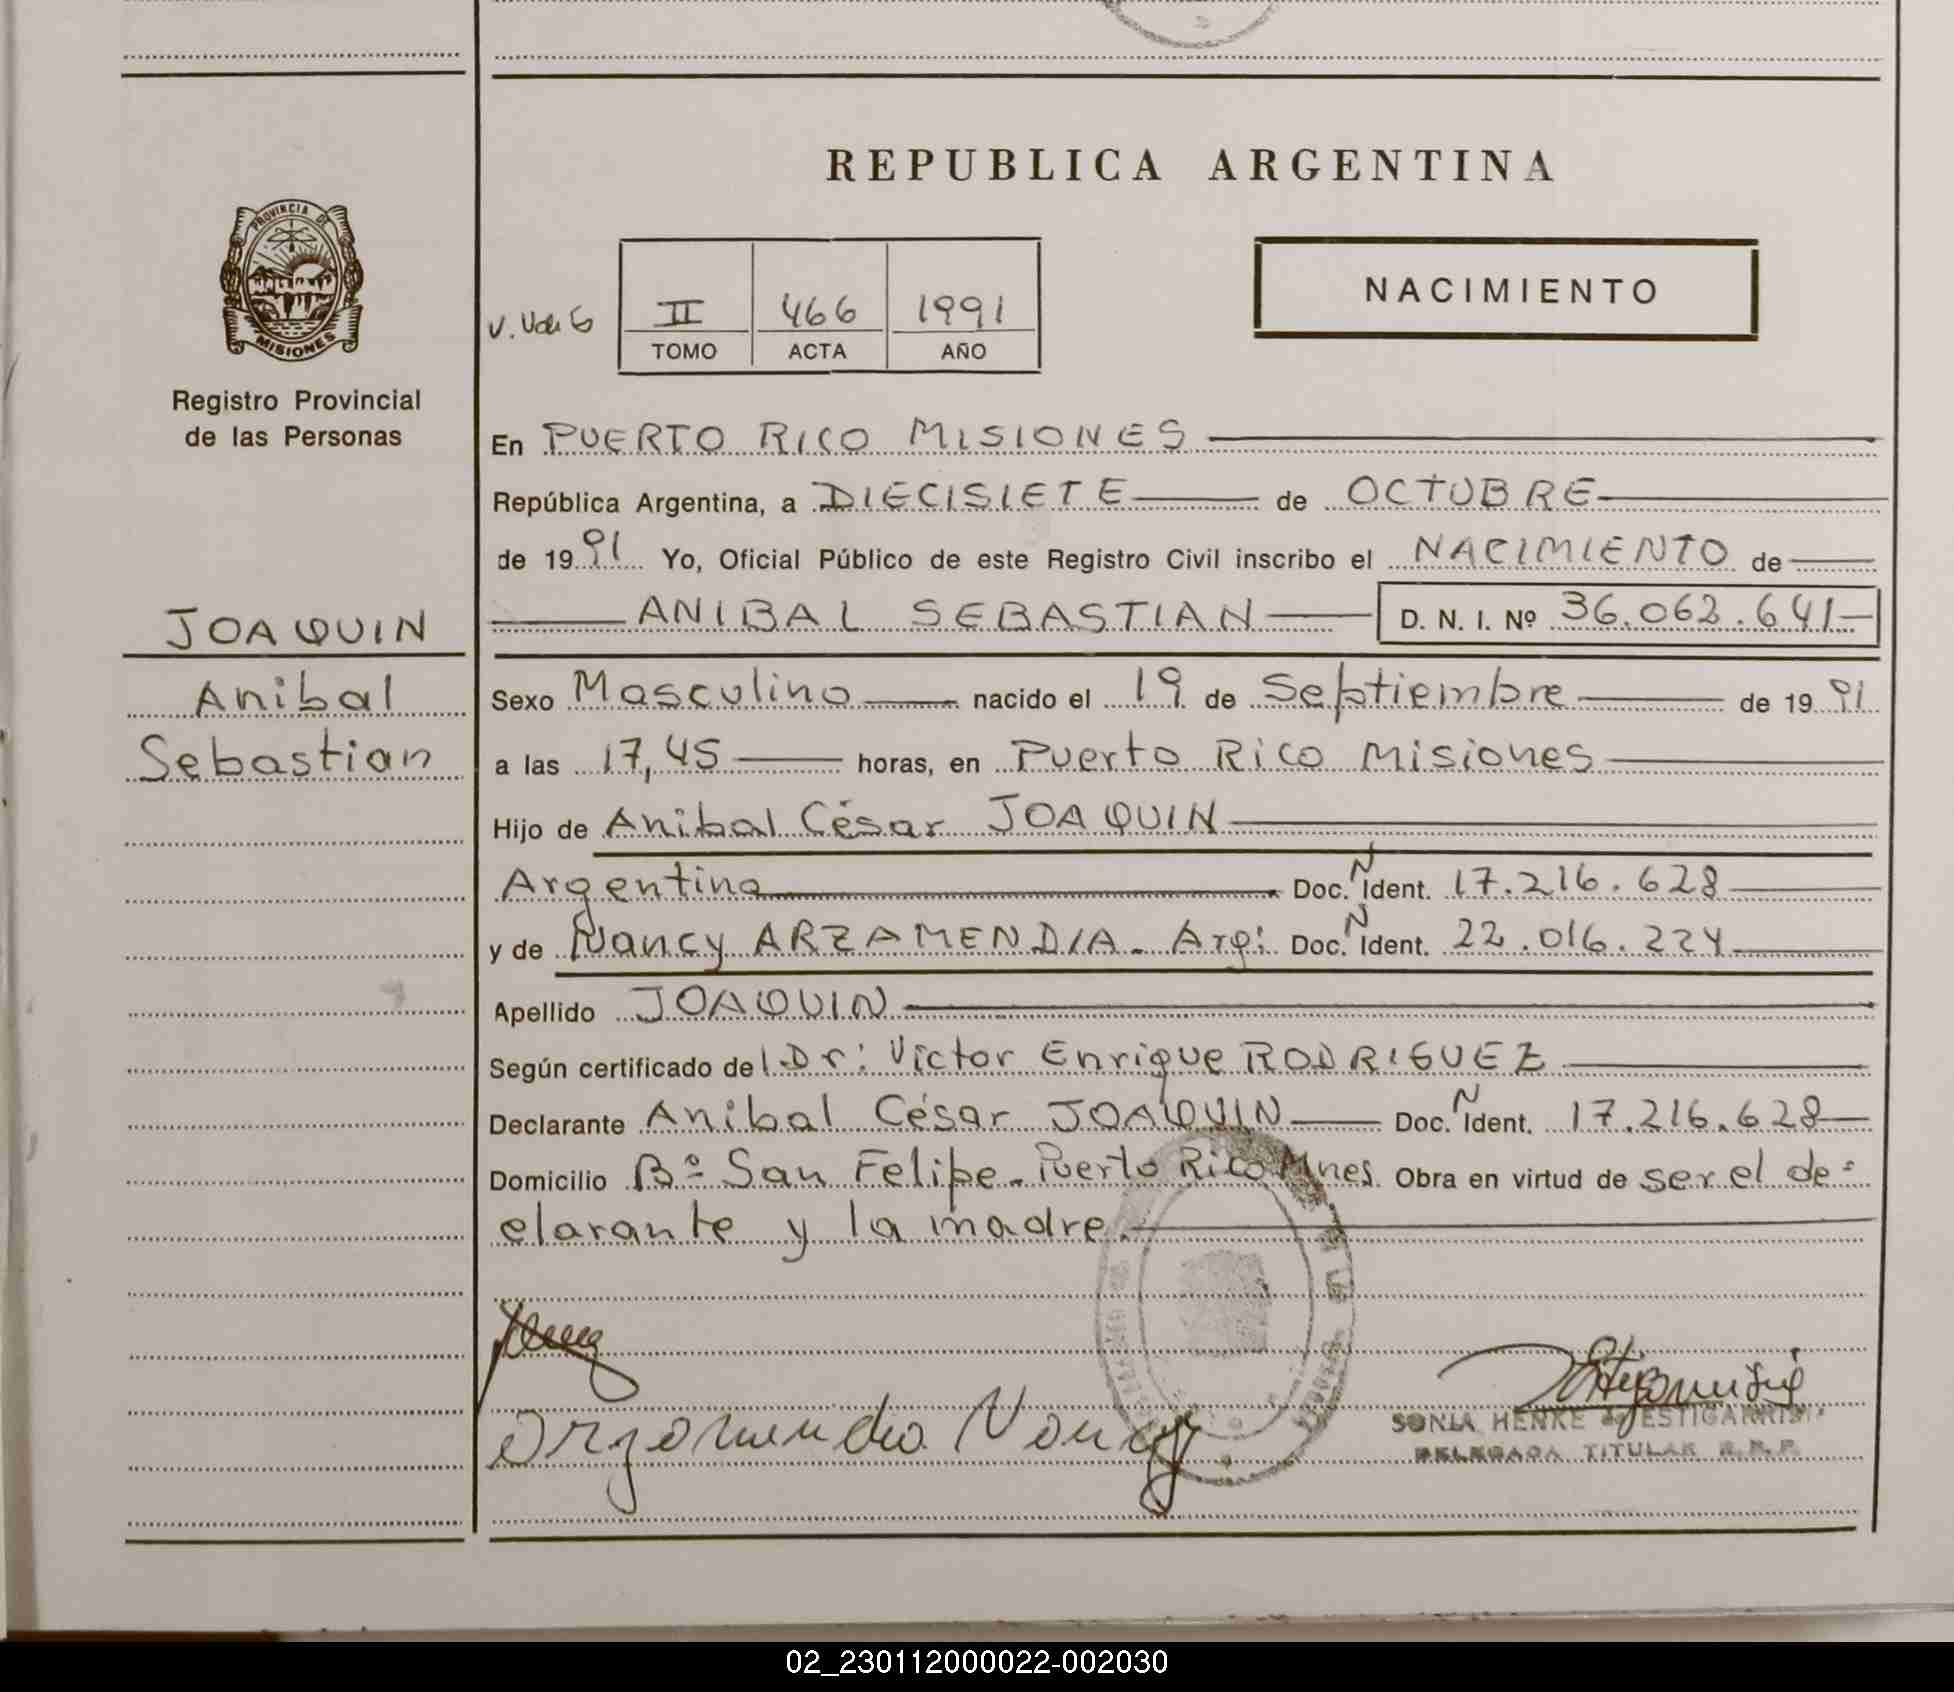 REPUBLICA ARGENTINA
PROVINCIA DE
MISIONES
Registro Provincial
de las Personas
II 466 1991
TOMO ACTA AÑO
NACIMIENTO
En PUERTO RICO MISIONES
República Argentina, a DIECISIETE de OCTUBRE
de 19 91 Yo, Oficial Público de este Registro Civil inscribo el NACIMIENTO de
ANIBAL SEBASTIAN D. N. I. Nº 36.062.641
JOAQUIN
Anibal
Sebastian
Sexo Masculino nacido el 19 de Septiembre de 19 91
a las 17,45 horas, en Puerto Rico Misiones
Hijo de Anibal César JOAQUIN
Argentino Doc. N Ident. 17.216.628
y de Nancy ARZAMENDIA. Arg: Doc. N Ident. 22.016.224
Apellido JOAQUIN
Según certificado del Dr: Victor Enrique RODRIGUEZ
Declarante Anibal César JOAQUIN Doc. N Ident. 17.216.628
Domicilio Bº San Felipe. Puerto Rico Mnes. Obra en virtud de ser el de=
clarante y la madre.
Arzamendia Nancy
SONIA HENKE de ESTIGARRIBIA
DELEGADA TITULAR R.R.P.
02_230112000022-002030